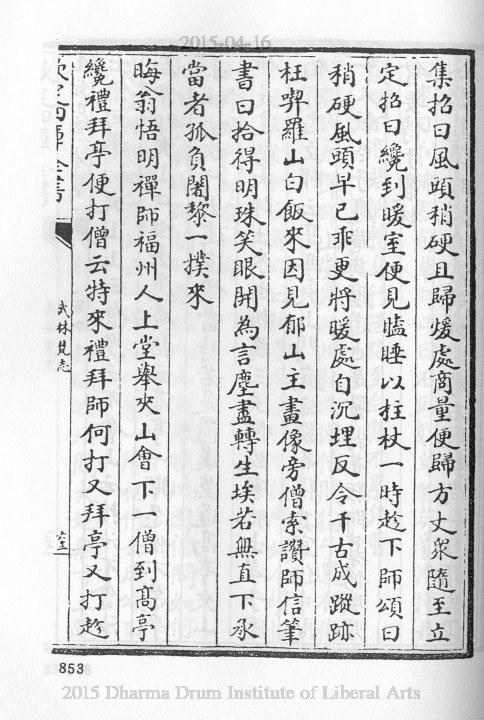 2015-04-16
集招曰風頭稍硬且歸煖處商量便歸方丈衆隨至立
定招曰纔到暖室便見瞌睡以拄杖一時趁下師頌曰
稍硬風頭早已乖更將暖處自沉埋反令千古成蹤跡
枉羅山白飯來因見郁山主畫像旁僧索讚師信筆
書曰拾得明珠笑眼開為言塵盡轉生埃若無直下承
當者孤負闍黎一撲來
晦翁悟明禪師福州人上堂舉夾山會下一僧到髙亭
纔禮拜亭便打僧云特來禮拜師何打又拜亭又打趁
欽定四庫全書
武林梵志
853
2015 Dharma Drum Institute of Liberal Arts